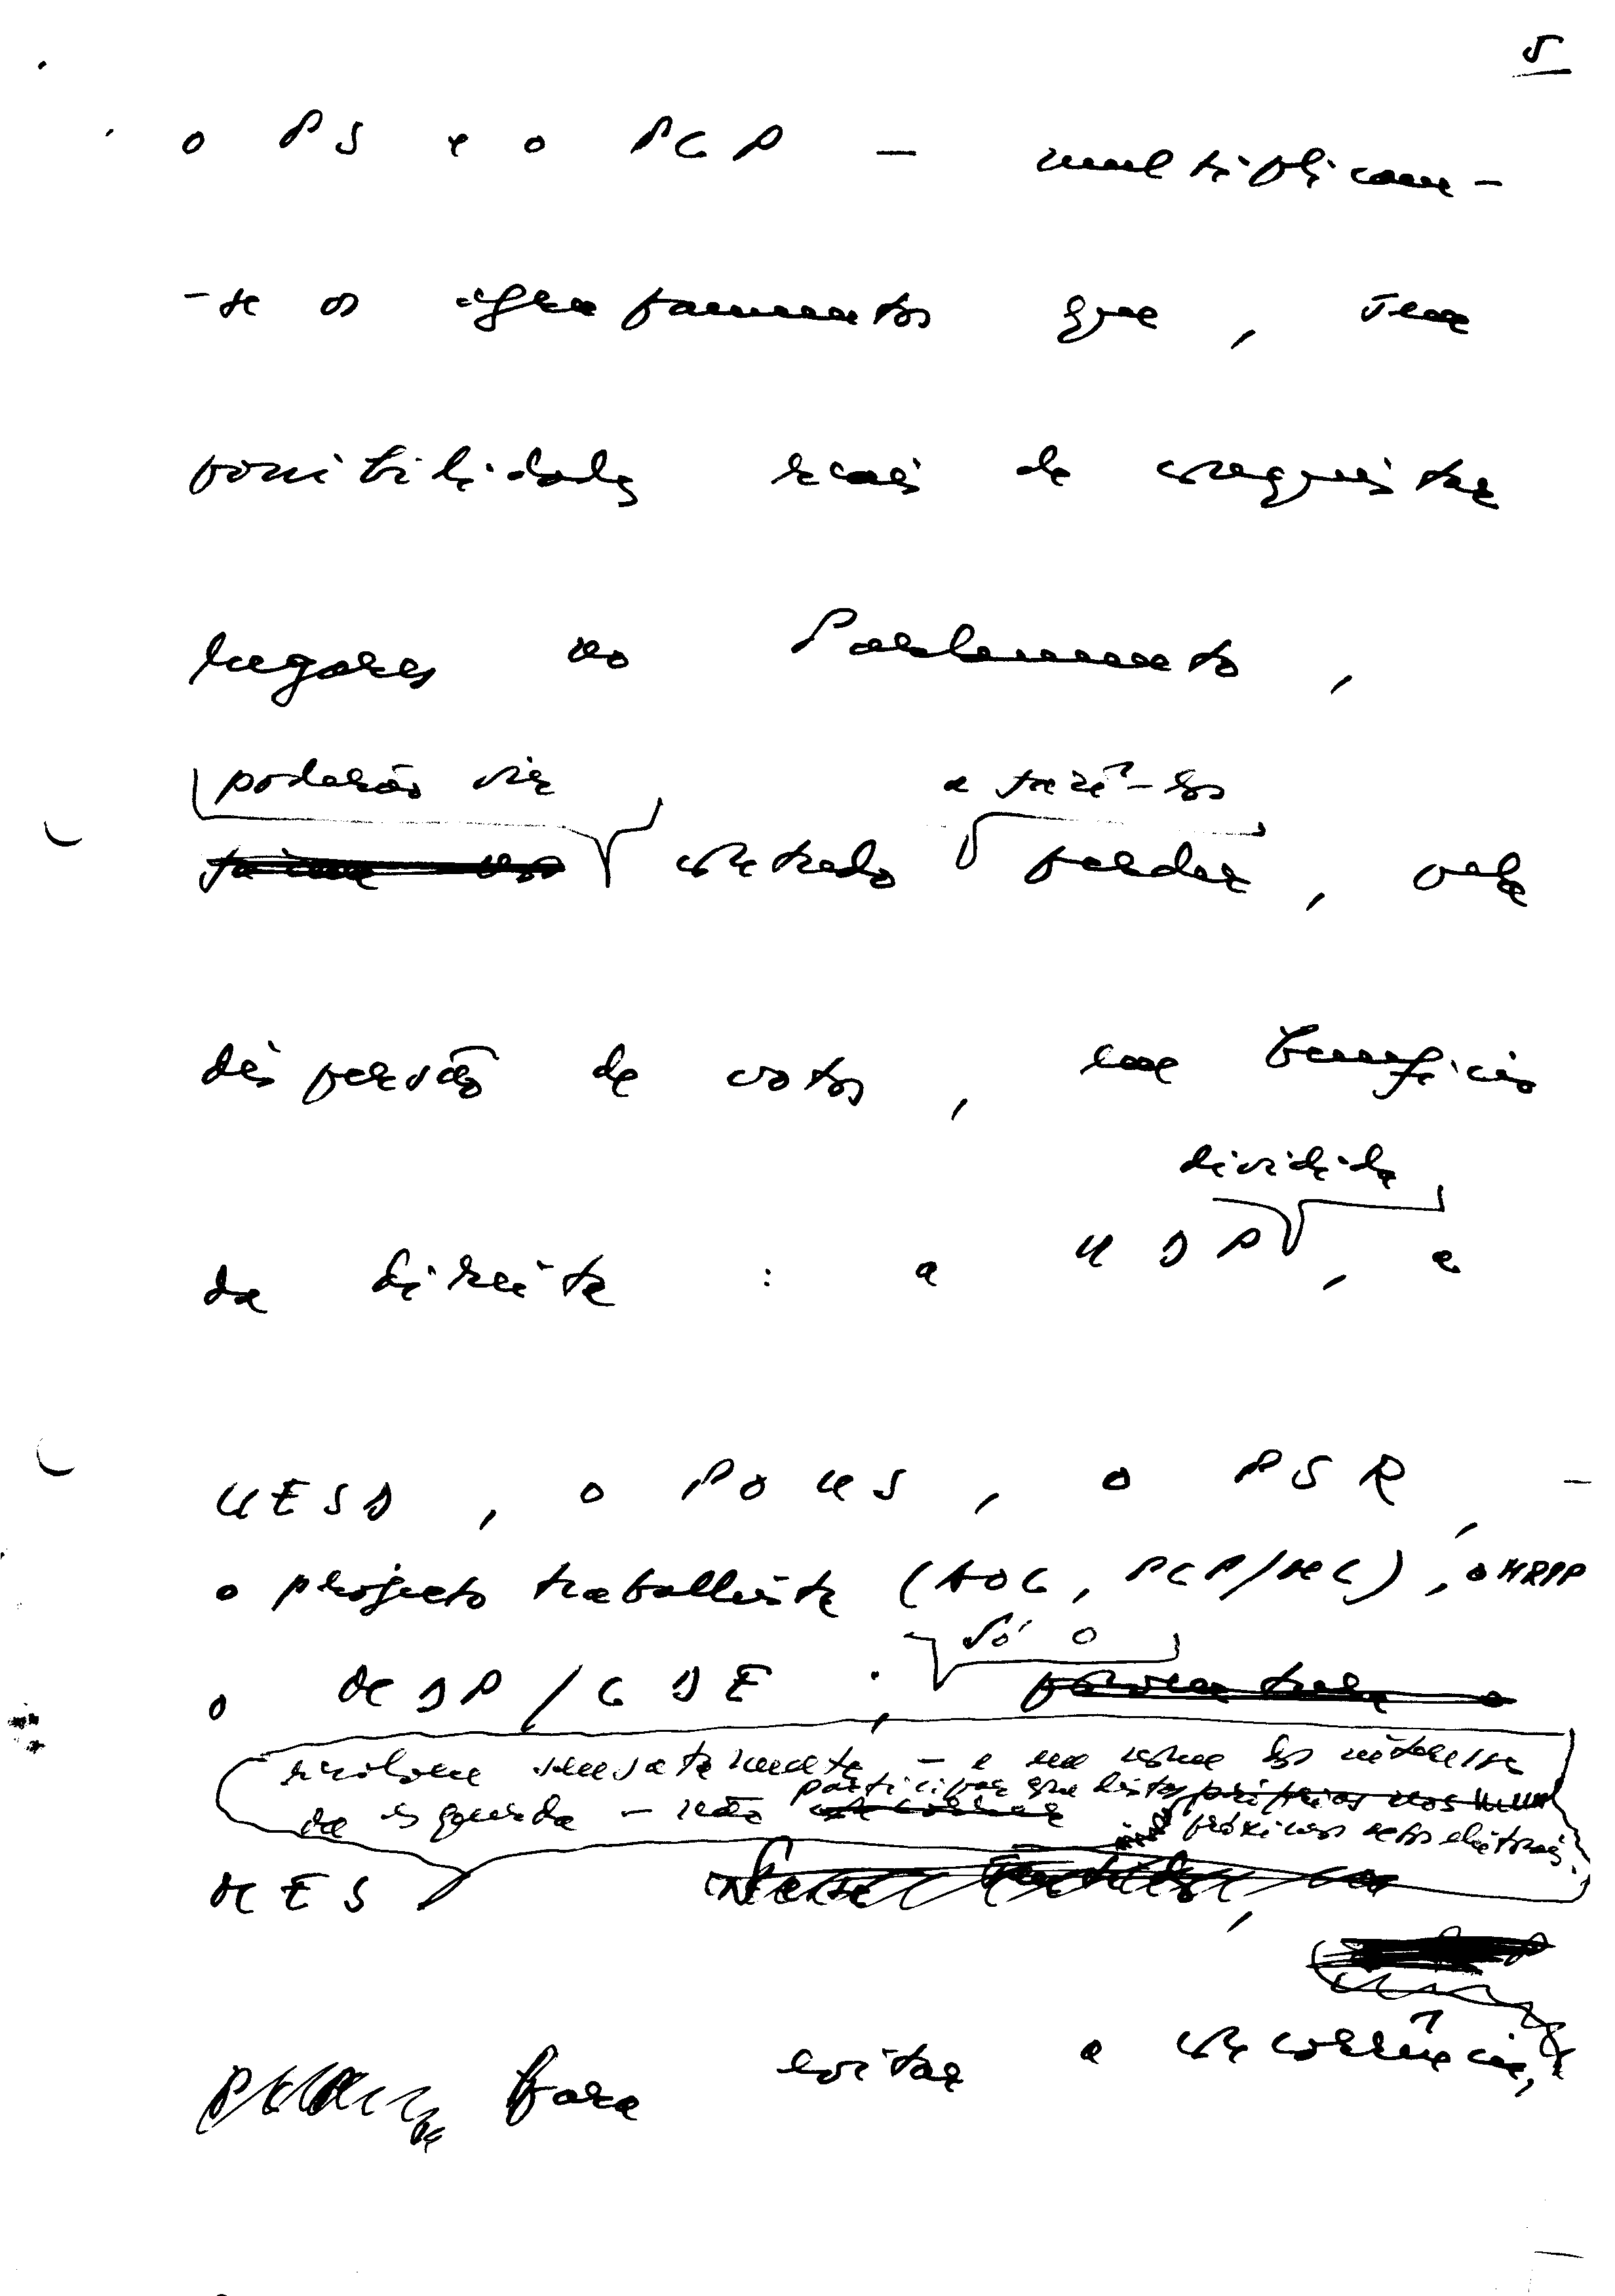 5
o PS e o PCP — multiplicam-
-se os agrupamentos que, sem
possibilidades reais de conquistar
lugares no Parlamento,
poderão vir a fazê-los
contudo perder, pela
dispersão de votos, em benefício
dividida
da direita : a UDP, a
UEDS, o POUS, o PSR,
o projecto trabalhista (AOC, PCP/ML), o MRPP
o MDP/CDE; só o
resolveu sensatamente — e em nome dos interesses
da esquerda — não participar em listas
próximos actos eleitorais.
MES
para evitar a concorrência,